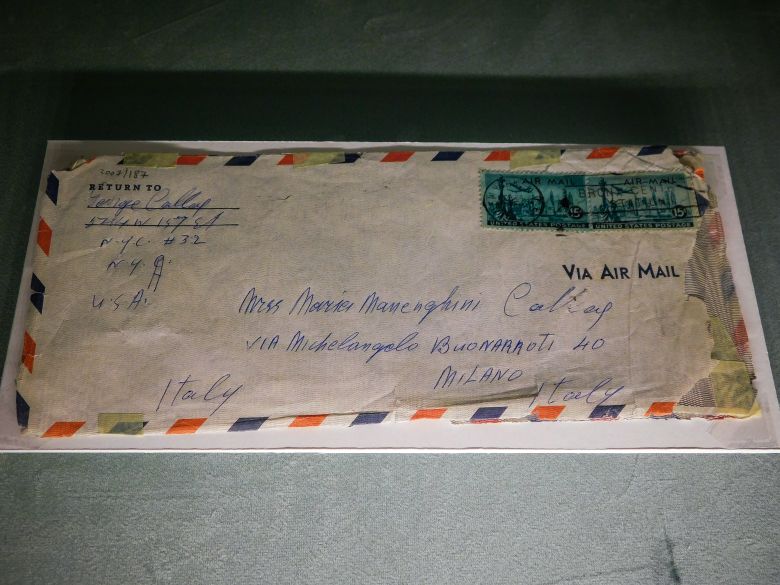 2007/187
RETURN TO
George Callas
W 157 St
N.Y.C. #32
N.Y.
U.S.A.
AIR MAIL
15¢
UNITED STATES POSTAGE
AIR MAIL
15¢
UNITED STATES POSTAGE
BRONX
VIA AIR MAIL
Miss Maria Menenghini Callas
VIA Michelangelo BUONARROTI 40
MILANO
Italy
Italy